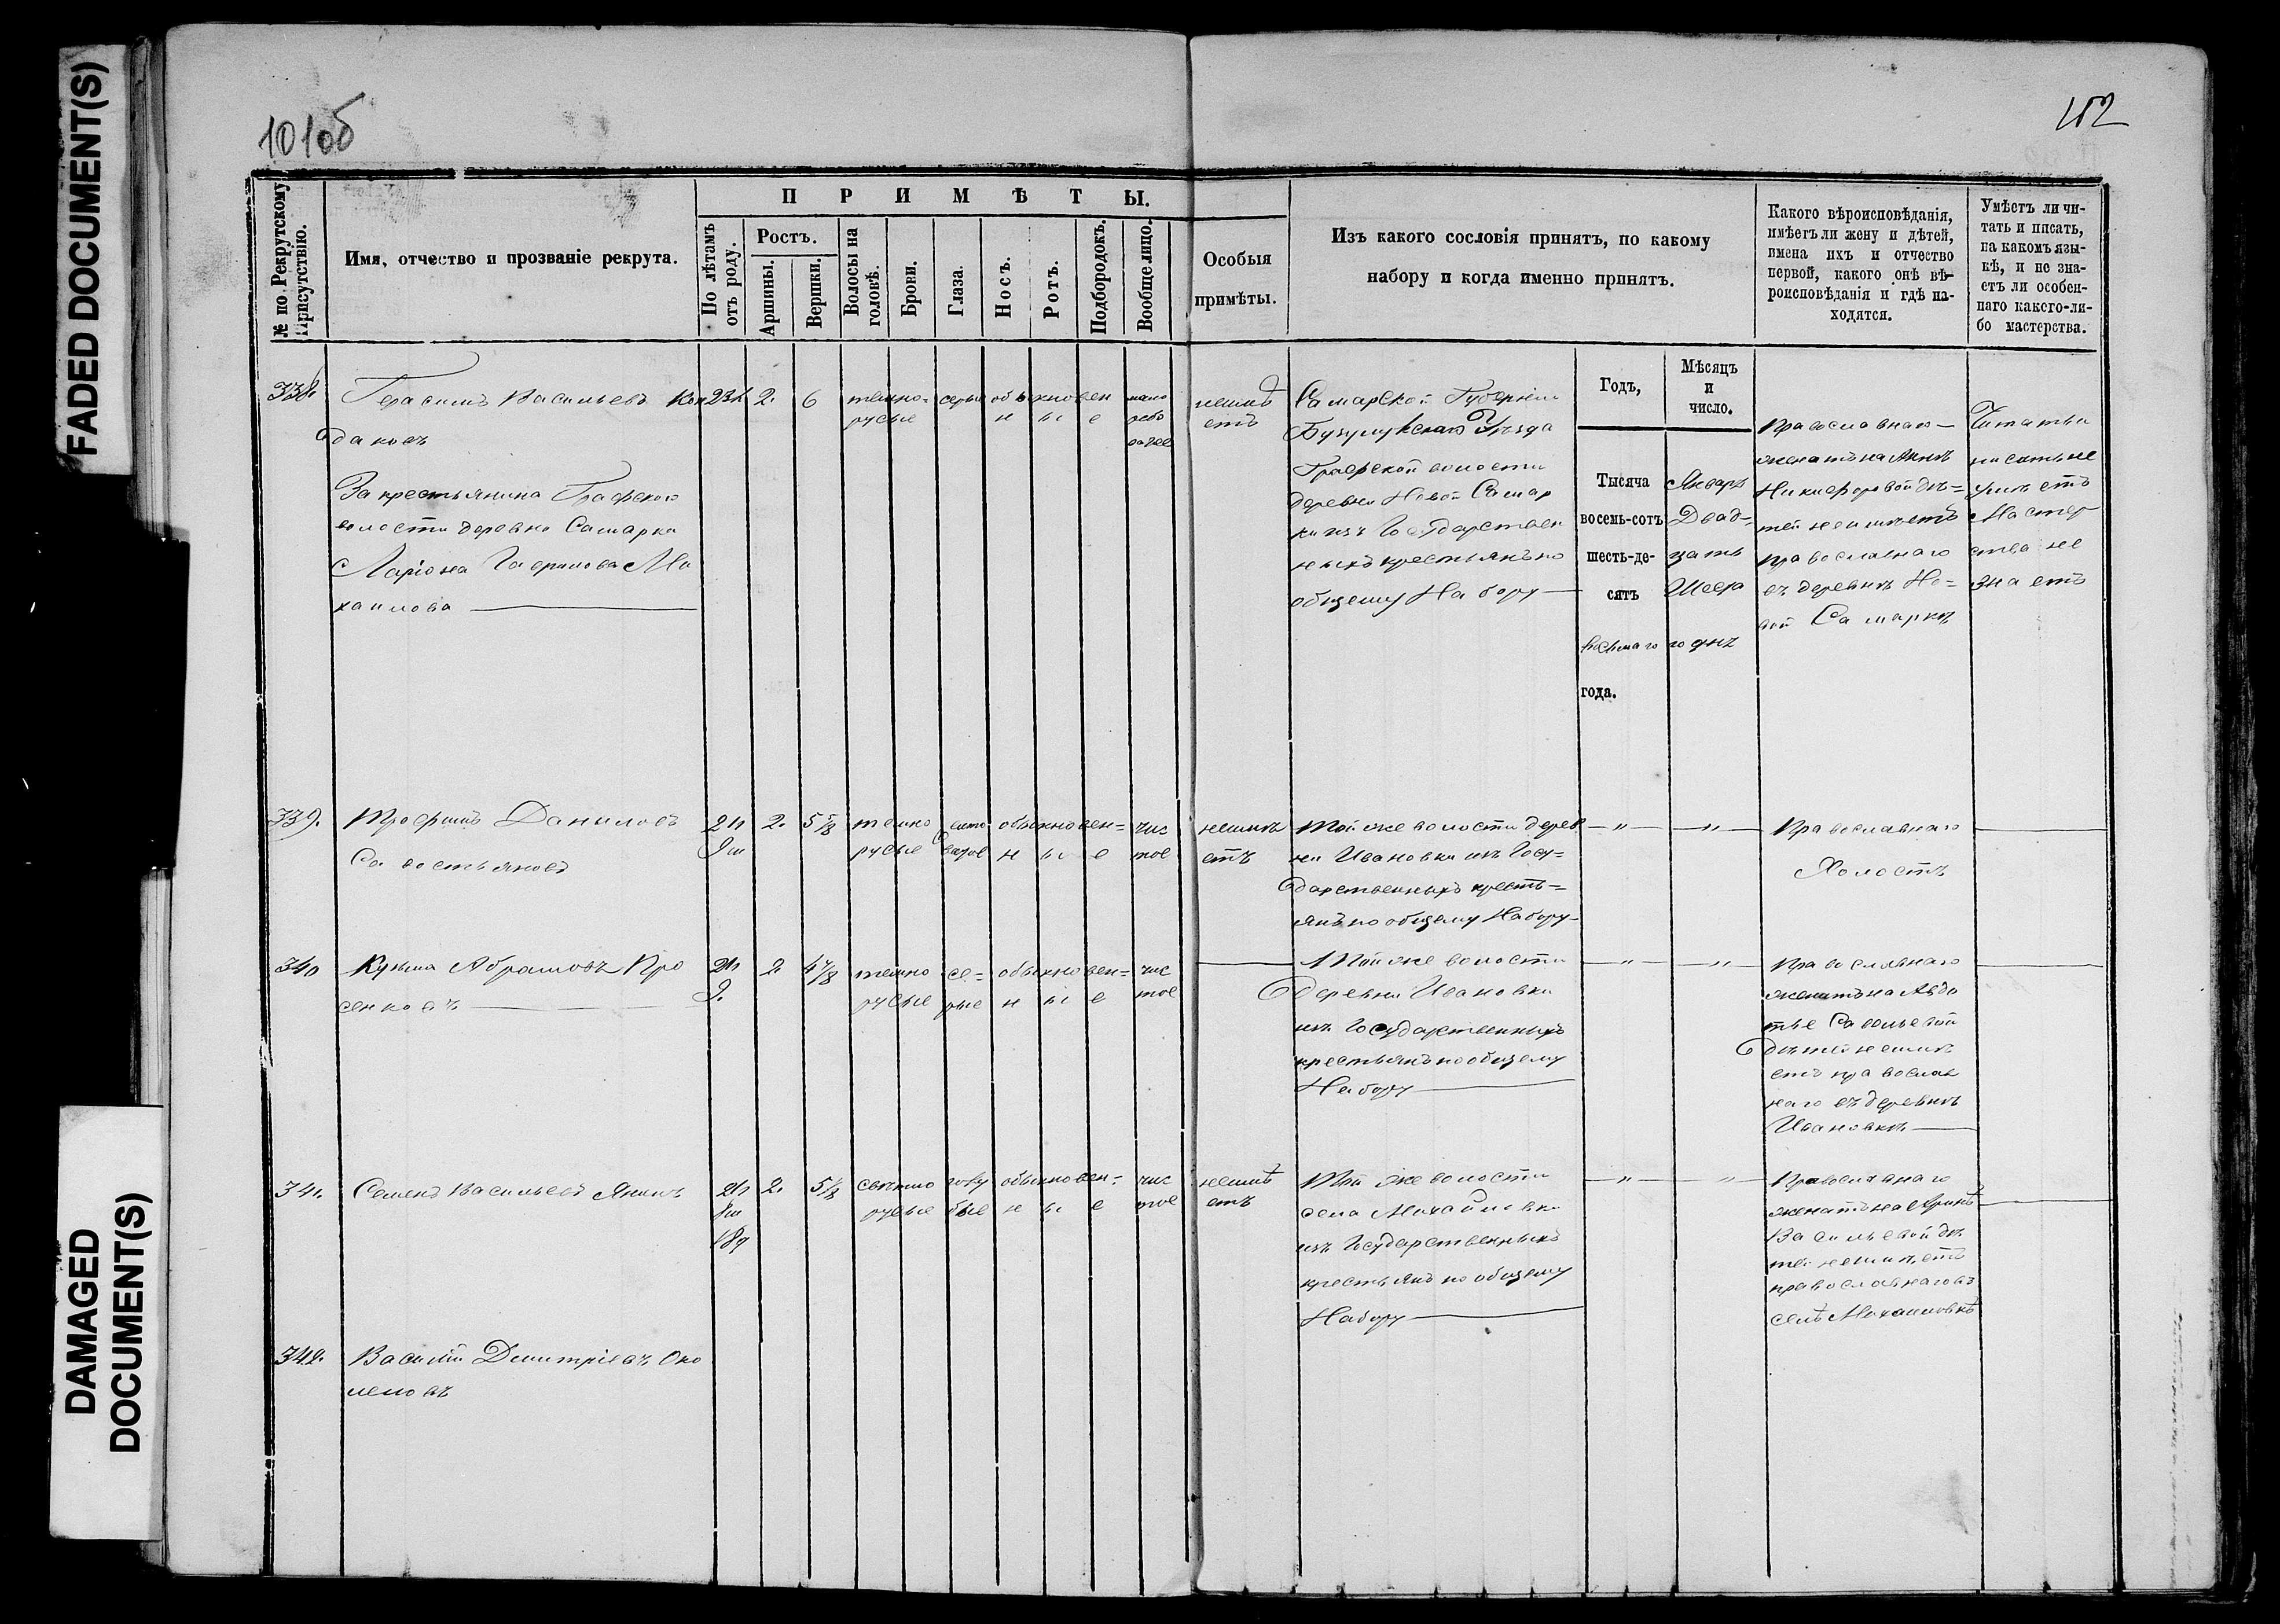 FADED DOCUMENT(S)
DAMAGED
DOCUMENT(S)
101об
102
№ по Рекрутскому
Присутствію.
Имя, отчество и прозваніе рекрута.
ПРИМѢТЫ.
По лѣтамъ
отъ роду.
Ростъ.
Аршины.
Вершки.
Волосы на
головѣ.
Брови.
Глаза.
Носъ.
Ротъ.
Подбородокъ.
Вообще лицо.
Особыя
примѣты.
Изъ какого сословія принятъ, по какому
набору и когда именно принятъ.
Какого вѣроисповѣданія,
имѣетъ ли жену и дѣтей,
имена ихъ и отчество
первой, какого онѣ вѣ-
роисповѣданія и гдѣ на-
ходятся.
Умѣетъ ли чи-
тать и писать,
на какомъ язы-
кѣ, и не зна-
етъ ли особен-
наго какого-ли-
бо мастерства.
338.
Герасимъ Васильевъ Кон
даковъ
За крестьянина Графской
волости деревни Самарки
Ларіона Гаврилова Ми
хаилова
2. 6
темно-
русые
серые
обыкновен
н ы е
мало
рябо
ватое
неимѣ
етъ
Самарской Губерніи
Бузулукскаго Уѣзда
Графской волости
деревни Новой Самар
ки изъ Государствен
ныхъ крестьянъ по
общему Набору
Годъ,
Тысяча
восемь-сотъ
шесть-де-
сятъ
восьмаго
года.
Мѣсяцъ
и
число.
Январь
Двад-
цать
Шесто
го дня
Православнаго
женатъ на Аннѣ
Никифоровой дѣ-
тей неимѣетъ
православнаго
въ деревнѣ Но-
вой Самаркѣ
Читать и
писать не
умѣетъ
Мастер
ства не
знаетъ
339.
Трофимъ Даниловъ
Савостьяновъ
21л
9м
2. 5 5/8
темно
русые
обыкновен-
н ы е
чис
тое
неимѣ
етъ
Той же волости дерев
ни Ивановки изъ Госу-
дарственныхъ кресть-
янъ по общему Набору
— " — — " —
Православнаго
Холостъ
340
Кузьма Абрамовъ Про
сенковъ
21л
9.
2. 4 7/8
темно
русые
се-
рые
обыкновен-
н ы е
чис
тое
Той же волости
деревни Ивановки
изъ Государственныхъ
крестьянъ по общему
Набору
— " — — " —
Православнаго
женатъ на Авдо
тье Савельевой
дѣтей неимѣ
етъ православ
наго въ деревнѣ
Ивановкѣ
341.
Семенъ Васильевъ Янинъ
21л
8м
18д
2. 5 1/8
свѣтло
русые
голу
бые
обыкновен-
н ы е
чис
тое
неимѣ
етъ
Той же волости
села Михайловки
изъ Государственныхъ
крестьянъ по общему
Набору
— " — — " —
Православнаго
женатъ на Аринѣ
Васильевой дѣ
тей неимѣетъ
православнаго въ
селѣ Михаиловкѣ
342.
Василій Димитріевъ Око